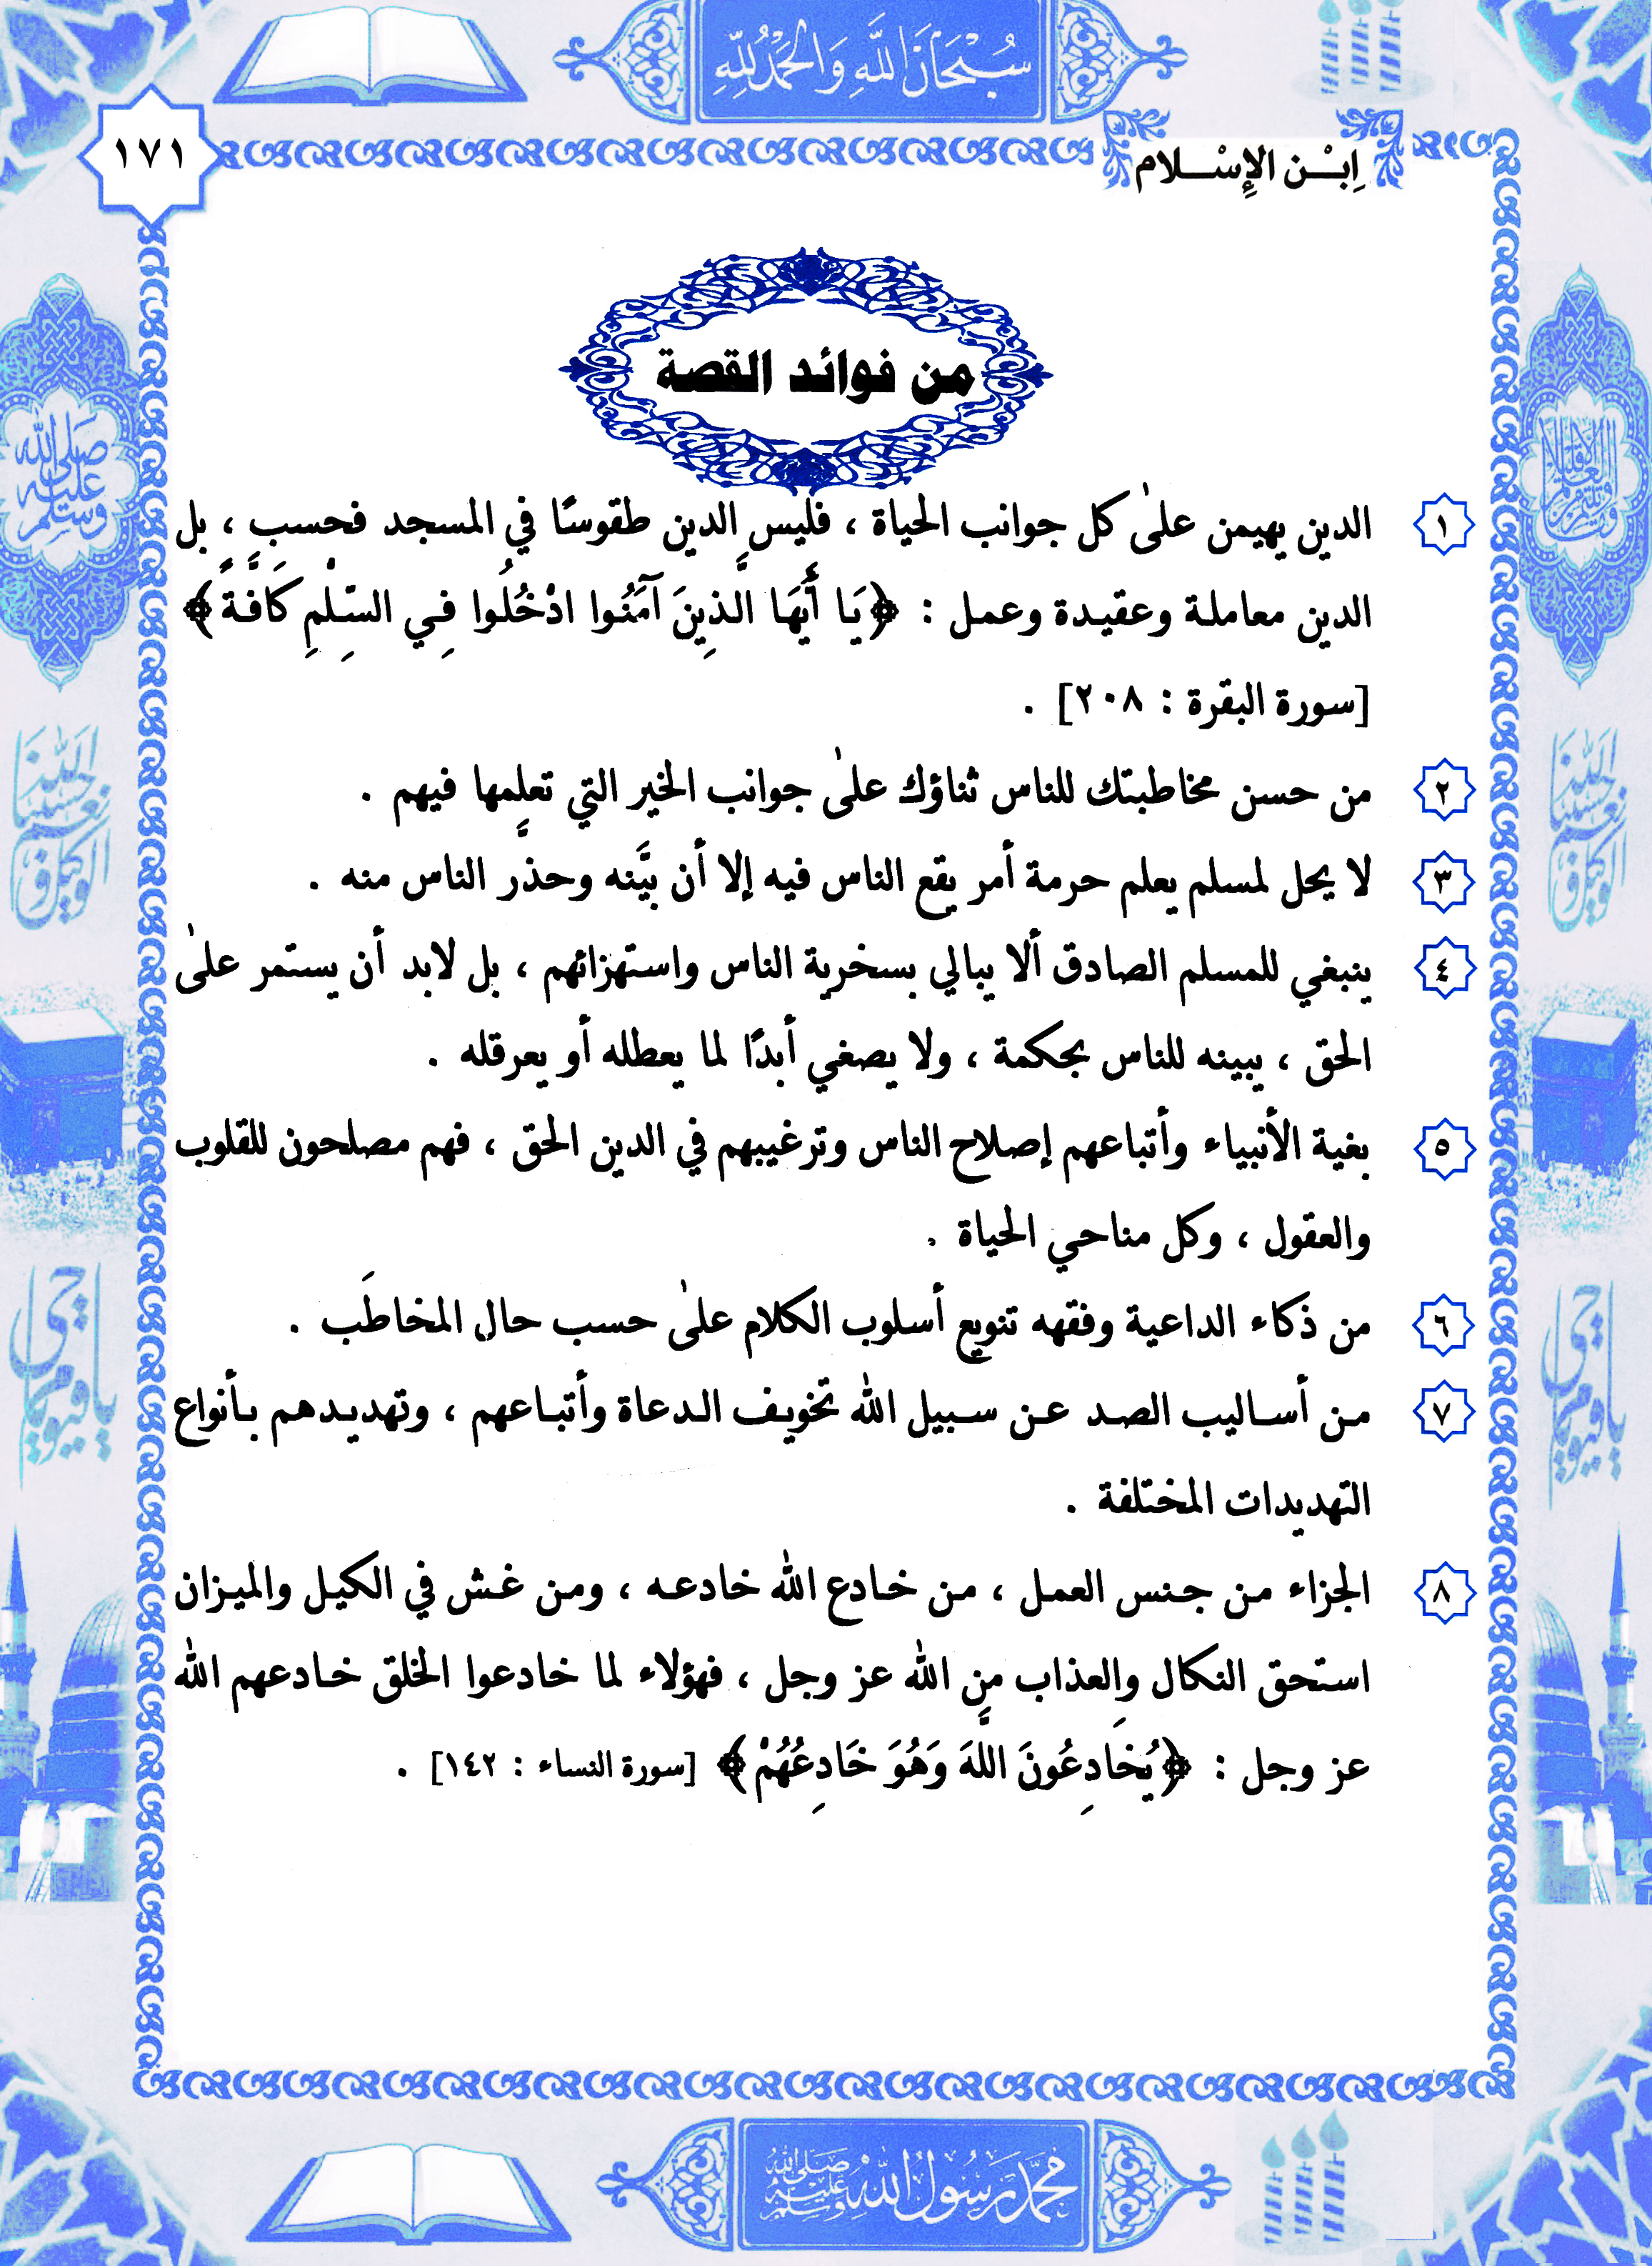 سُبْحَانَ اللَّهِ وَالْحَمْدُ لِلَّهِ
١٧١
اِبْن الإِسْلام
من فوائد القصة
١ الدين يهيمن علىٰ كل جوانب الحياة ، فليس الدين طقوسًا في المسجد فحسب ، بل
الدين معاملة وعقيدة وعمل : ﴿يَا أَيُّهَا الَّذِينَ آمَنُوا ادْخُلُوا فِي السِّلْمِ كَافَّةً﴾
[سورة البقرة : ٢٠٨] .
٢ من حسن مخاطبتك للناس ثناؤك علىٰ جوانب الخير التي تعلمها فيهم .
٣ لا يحل لمسلم يعلم حرمة أمر يقع الناس فيه إلا أن بيَّنه وحذَّر الناس منه .
٤ ينبغي للمسلم الصادق ألا يبالي بسخرية الناس واستهزائهم ، بل لابد أن يستمر علىٰ
الحق ، يبينه للناس بحكمة ، ولا يصغي أبدًا لما يعطله أو يعرقله .
٥ بغية الأنبياء وأتباعهم إصلاح الناس وترغيبهم في الدين الحق ، فهم مصلحون للقلوب
والعقول ، وكل مناحي الحياة .
٦ من ذكاء الداعية وفقهه تنويع أسلوب الكلام علىٰ حسب حال المخاطَب .
٧ من أساليب الصد عن سبيل الله تخويف الدعاة وأتباعهم ، وتهديدهم بأنواع
التهديدات المختلفة .
٨ الجزاء من جنس العمل ، من خادع الله خادعه ، ومن غش في الكيل والميزان
استحق النكال والعذاب من الله عز وجل ، فهؤلاء لما خادعوا الخلق خادعهم الله
عز وجل : ﴿يُخَادِعُونَ اللَّهَ وَهُوَ خَادِعُهُمْ﴾ [سورة النساء : ١٤٢] .
صلى الله عليه وسلم
حسبنا الله ونعم الوكيل
حسبنا الله ونعم الوكيل
يا حي يا قيوم
يا حي يا قيوم
محمد رسول الله صلى الله عليه وسلم